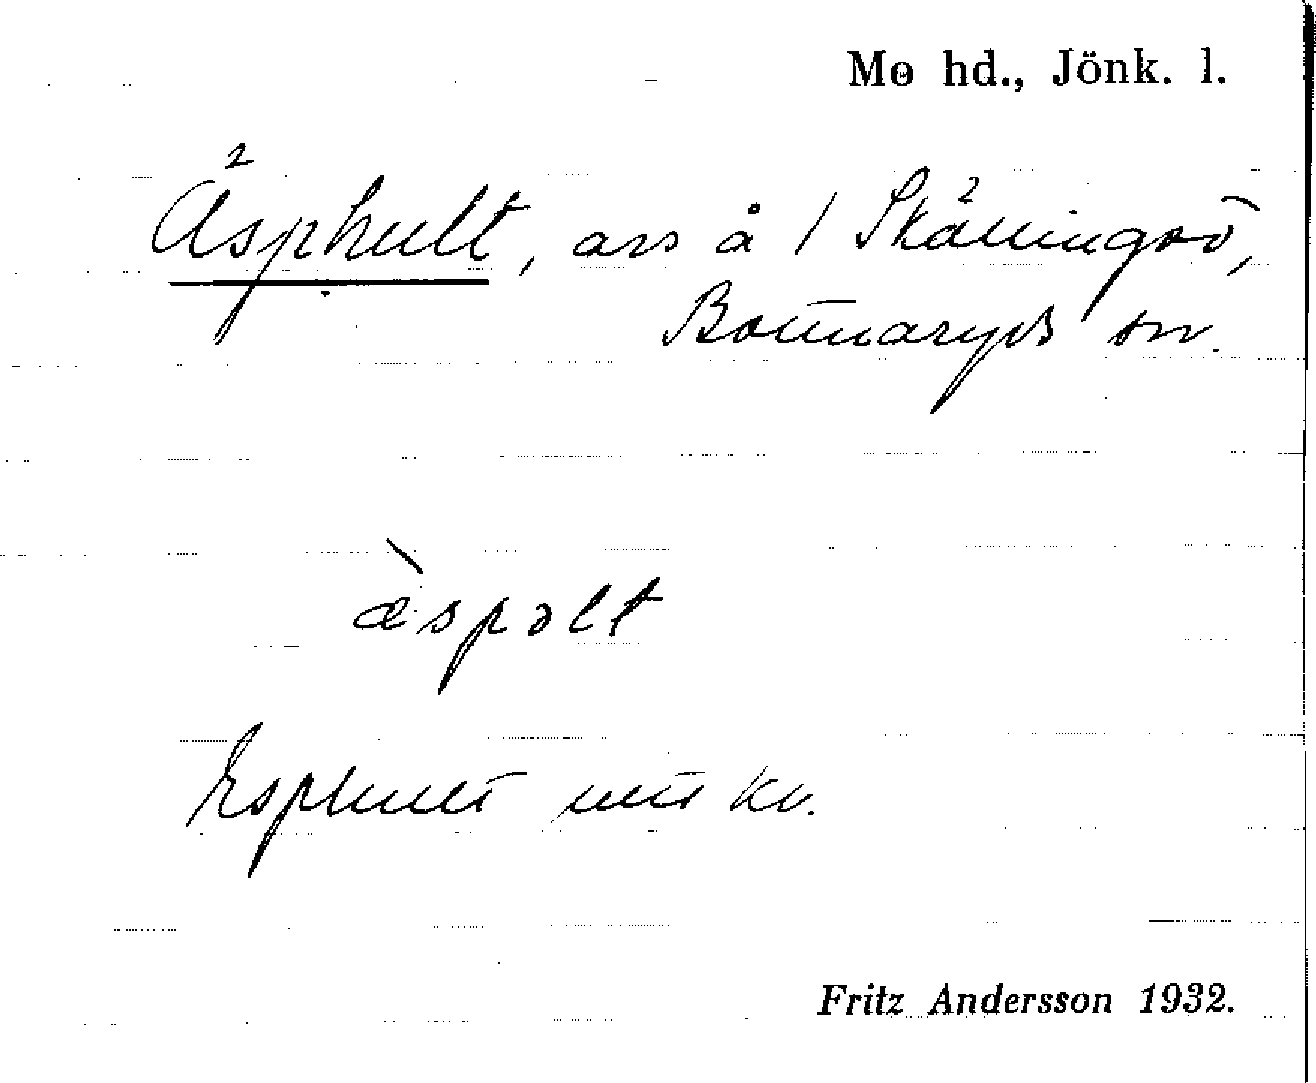 Mo hd., Jönk. l.
Äsphult, avs å 1 Skällingsö,
Bottnaryds sn.
æ̀spəlt
Esphult utt kv.
Fritz Andersson 1932.